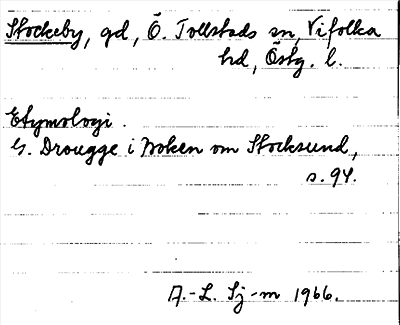 Stockeby, gd, Ö. Tollstads sn, Vifolka
hd, Östg. l.
Etymologi.
G. Drougge i Boken om Stocksund,
s. 94.
A.-L. Sj-m 1966.